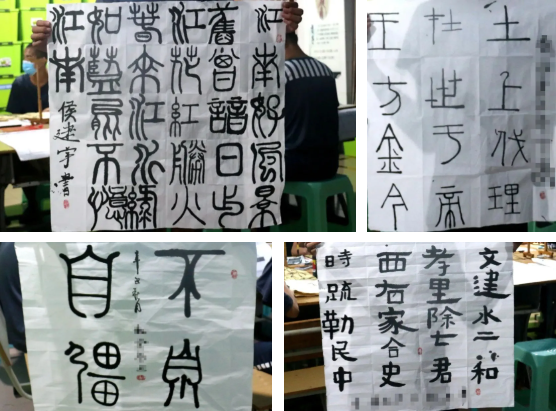 江南好風景
舊曾諳日出
江花紅勝火
春來江水綠
如藍能不憶
江南
侯建宇書
土上伐理
杜世于帝
王方金今
不息
自彊
文建水二和
孝里除七君
西石家合史
時疏勒民中